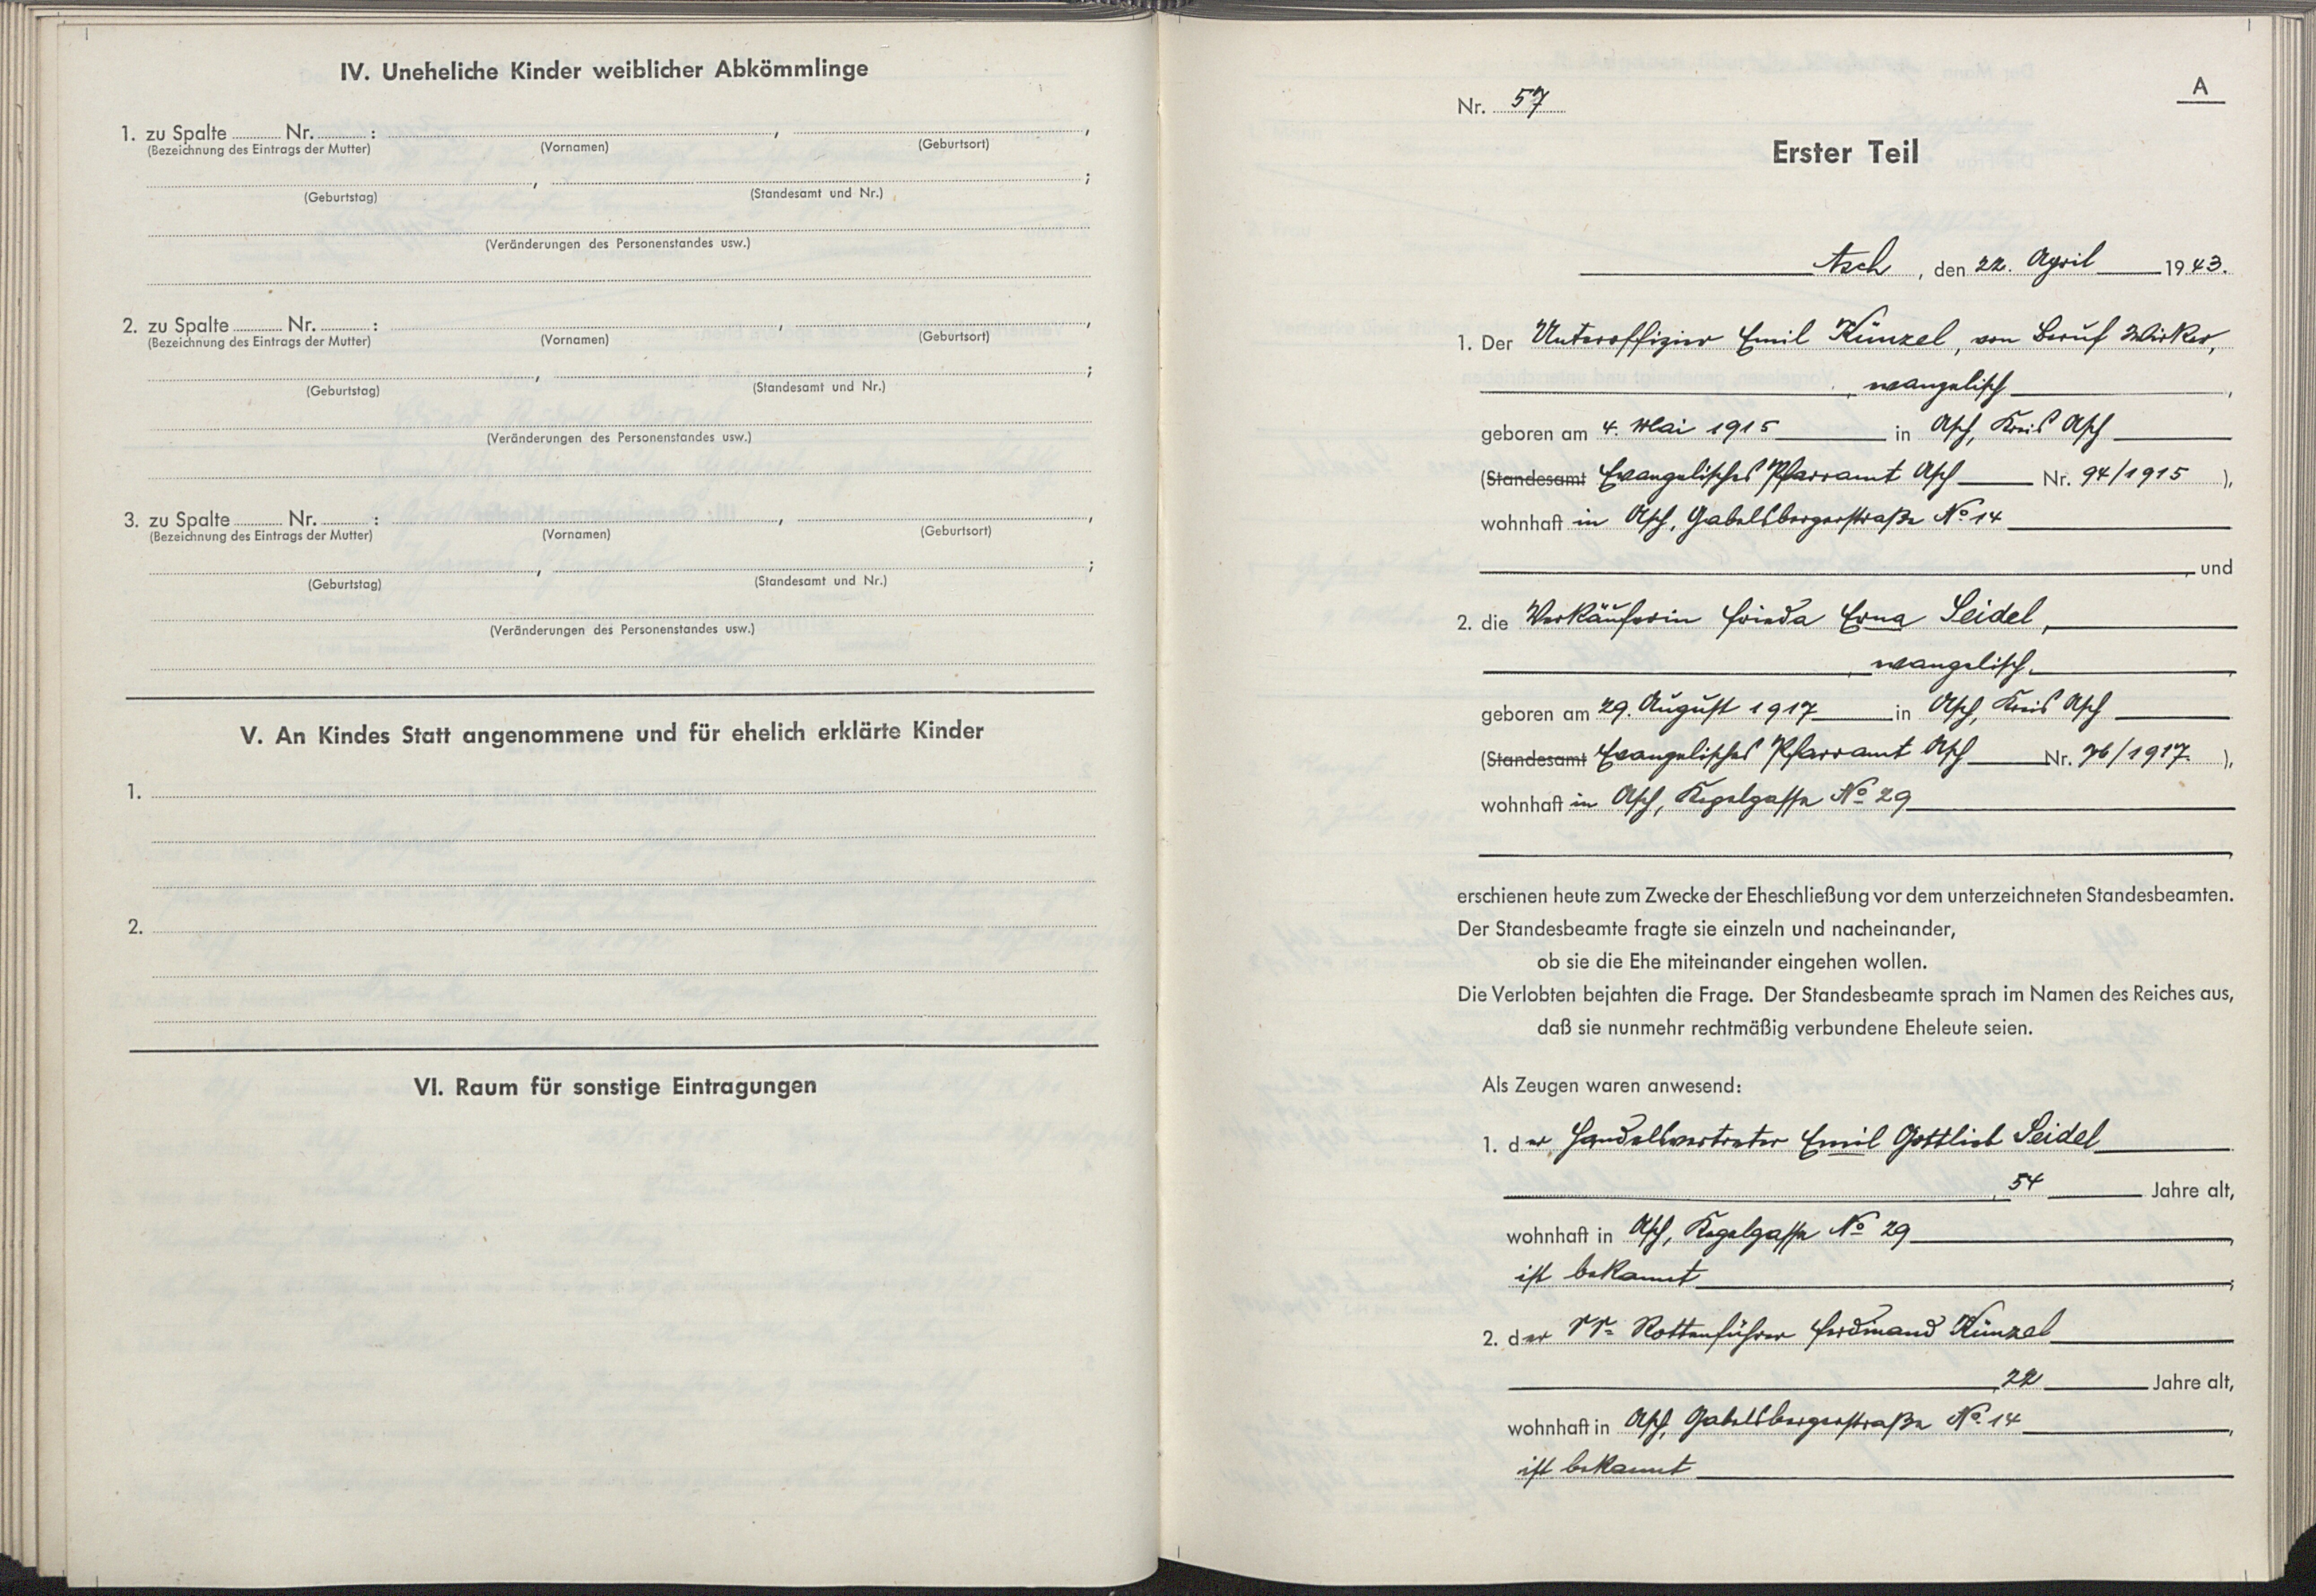 IV. Uneheliche Kinder weiblicher Abkömmlinge
1. zu Spalte ........ Nr. ........ : ........ , ........ ,
(Bezeichnung des Eintrags der Mutter) (Vornamen) (Geburtsort)
........ , ........ ;
(Geburtstag) (Standesamt und Nr.)
(Veränderungen des Personenstandes usw.)
2. zu Spalte ........ Nr. ........ : ........ , ........ ,
(Bezeichnung des Eintrags der Mutter) (Vornamen) (Geburtsort)
........ , ........ ;
(Geburtstag) (Standesamt und Nr.)
(Veränderungen des Personenstandes usw.)
3. zu Spalte ........ Nr. ........ : ........ , ........ ,
(Bezeichnung des Eintrags der Mutter) (Vornamen) (Geburtsort)
........ , ........ ;
(Geburtstag) (Standesamt und Nr.)
(Veränderungen des Personenstandes usw.)
V. An Kindes Statt angenommene und für ehelich erklärte Kinder
1.
2.
VI. Raum für sonstige Eintragungen
A
Nr. 57
Erster Teil
Asch, den 22. April 1943.
1. Der Unteroffizier Emil Künzel, von Beruf Wirker,
, evangelisch ,
geboren am 4. Mai 1915 in Asch, Kreis Asch
(Standesamt Evangelisches Pfarramt Asch Nr. 94/1915 ),
wohnhaft in Asch, Gabelsbergerstraße No 14
, und
2. die Verkäuferin Frieda Erna Seidel,
, evangelisch ,
geboren am 29. August 1917 in Asch, Kreis Asch
(Standesamt Evangelisches Pfarramt Asch Nr. 76/1917. ),
wohnhaft in Asch, Kegelgasse No 29
,
erschienen heute zum Zwecke der Eheschließung vor dem unterzeichneten Standesbeamten.
Der Standesbeamte fragte sie einzeln und nacheinander,
ob sie die Ehe miteinander eingehen wollen.
Die Verlobten bejahten die Frage. Der Standesbeamte sprach im Namen des Reiches aus,
daß sie nunmehr rechtmäßig verbundene Eheleute seien.
Als Zeugen waren anwesend:
1. der Handelsvertreter Emil Gottlieb Seidel
, 54 Jahre alt,
wohnhaft in Asch, Kegelgasse No 29 ,
ist bekannt ;
2. der SS-Rottenführer Ferdinand Künzel
, 22 Jahre alt,
wohnhaft in Asch, Gabelsbergerstraße No. 14 ,
ist bekannt